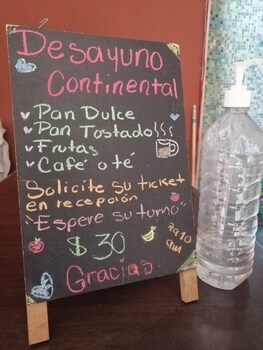 Desayuno
Continental
Pan Dulce
Pan Tostado!!!
Frutas
Café o té
Solicite su ticket
en recepción
"Espere su turno"
$30
7 a 10
am
Gracias